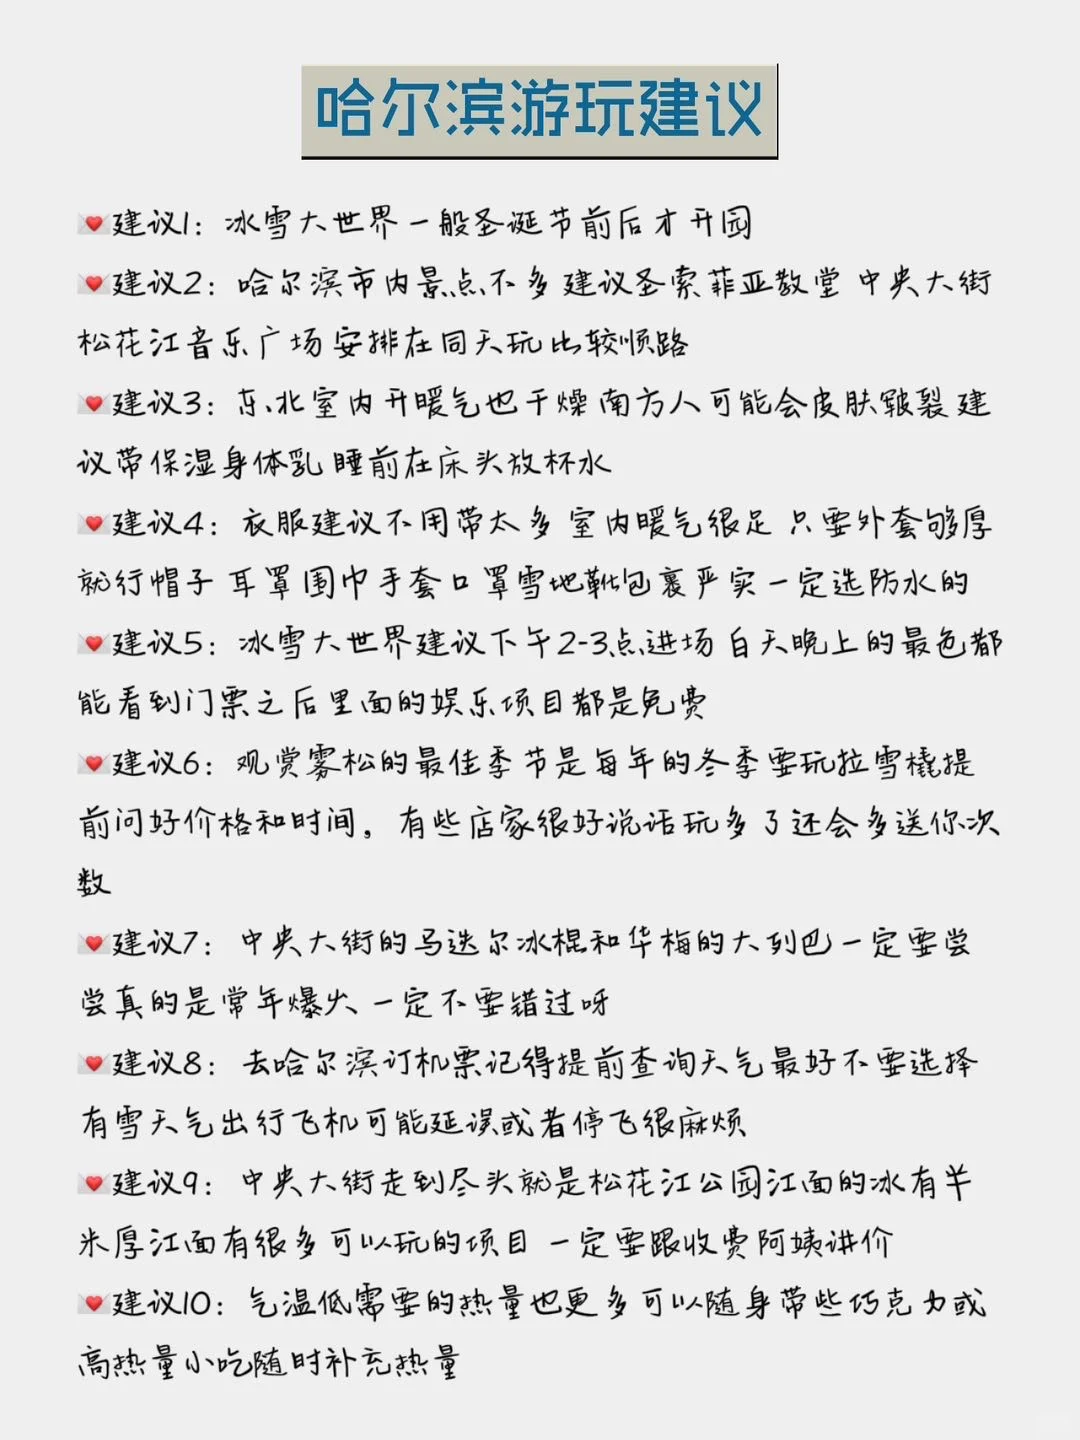 哈尔滨游玩建议
建议1：冰雪大世界一般圣诞节前后才开园
建议2：哈尔滨市内景点不多 建议圣索菲亚教堂 中央大街
松花江音乐广场 安排在同天玩比较顺路
建议3：东北室内开暖气也干燥 南方人可能会皮肤皲裂 建
议带保湿身体乳 睡前在床头放杯水
建议4：衣服建议不用带太多 室内暖气很足 只要外套够厚
就行帽子 耳罩 围巾手套口罩雪地靴包裹严实一定选防水的
建议5：冰雪大世界建议下午2-3点进场 白天晚上的景色都
能看到门票之后里面的娱乐项目都是免费
建议6：观赏雾松的最佳季节是每年的冬季要玩拉雪橇提
前问好价格和时间，有些店家很好说话玩多了还会多送你次
数
建议7：中央大街的马迭尔冰棍和华梅的大列巴一定要尝
尝真的是常年爆火 一定不要错过呀
建议8：去哈尔滨订机票记得提前查询天气最好不要选择
有雪天气出行飞机可能延误或者停飞很麻烦
建议9：中央大街走到尽头就是松花江公园江面的冰有半
米厚江面有很多可以玩的项目 一定要跟收费阿姨讲价
建议10：气温低需要的热量也更多可以随身带些巧克力或
高热量小吃随时补充热量